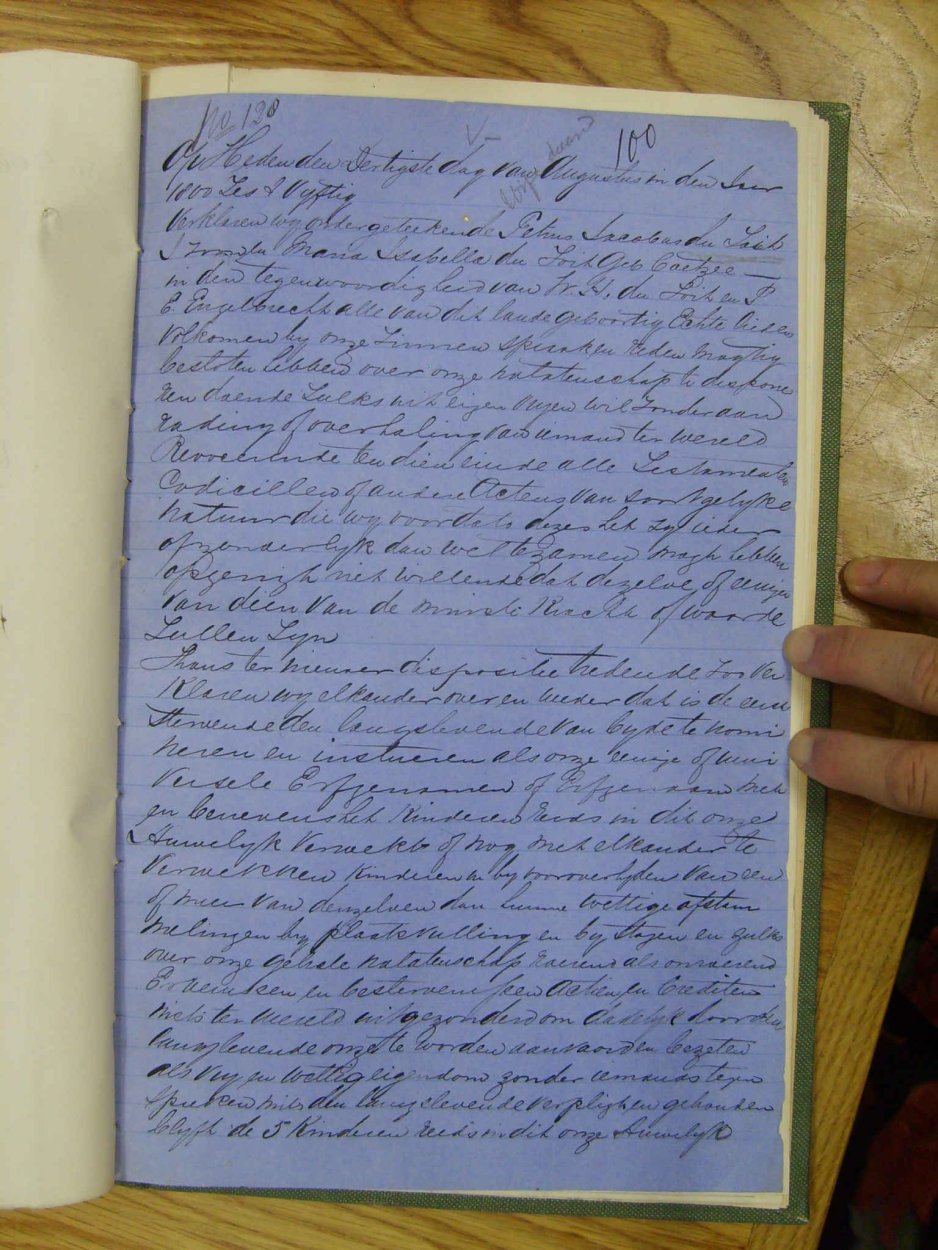 No 128
100
Op Heden den Dertigste dag van Augustus in den Jaar
1800 Zes & Vyftig
Verklaren wy ondergeteekende Petrus Jacobus du Toit
Maria Isabella du Toit Geb Coetzee —
in den tegenwoordigheid van W. H. du Toit en P
E. Engelbrecht alle van dit lande geboortig Echte lieden
Volkomen by onze Zinnen spraaken reden magtig
besloten hebben over onze natatenschap te dispone
ren doende Zulks uit eigen vryen wil zonder aan
rading of overhaling van iemand ter wereld
Revoceerende ten dien einde alle Testamenten
Codicillen of andere Actens van soortgelyke
natuur die wy voor dato dezes het zy ieder
afzonderlyk dan wel tezamen mogh hebben
opgerigh niet willende dat dezelve of eenige
van dien van de minste Kracht of waarde
Zullen Zyn
Thans ter nieuwer dispositie tredende Zoo Ver
Klaren wy elkander over en weder dat is de eerst
Stervende den langstlevende van byde te nomi
neren en instueren als onze eenige of uni
versele Erfgenamen of Erfgenaam met
en benevens het Kinderen reeds in dit onze
Huwelyk Verwekt of nog met elkander te
Verwekken Kinderen en by vooroverlyden van een
of meer van denzelven dan hunne wettige afstam
melingen by plaatsvulling en by stagen en zulks
over onze geheele natatenschap roerend als onroerend
Erven en besterven Actien en Crediten
niets ter wereld uitgezonderd om dadelyk door den
langslevende onzer te worden aanvaard en bezeten
als vry en wettig eigendom zonder iemands tegen
spreken mits den langslevende verpligh en gehouden
blyft de 5 Kinderen reeds in dit onze Huwelyk